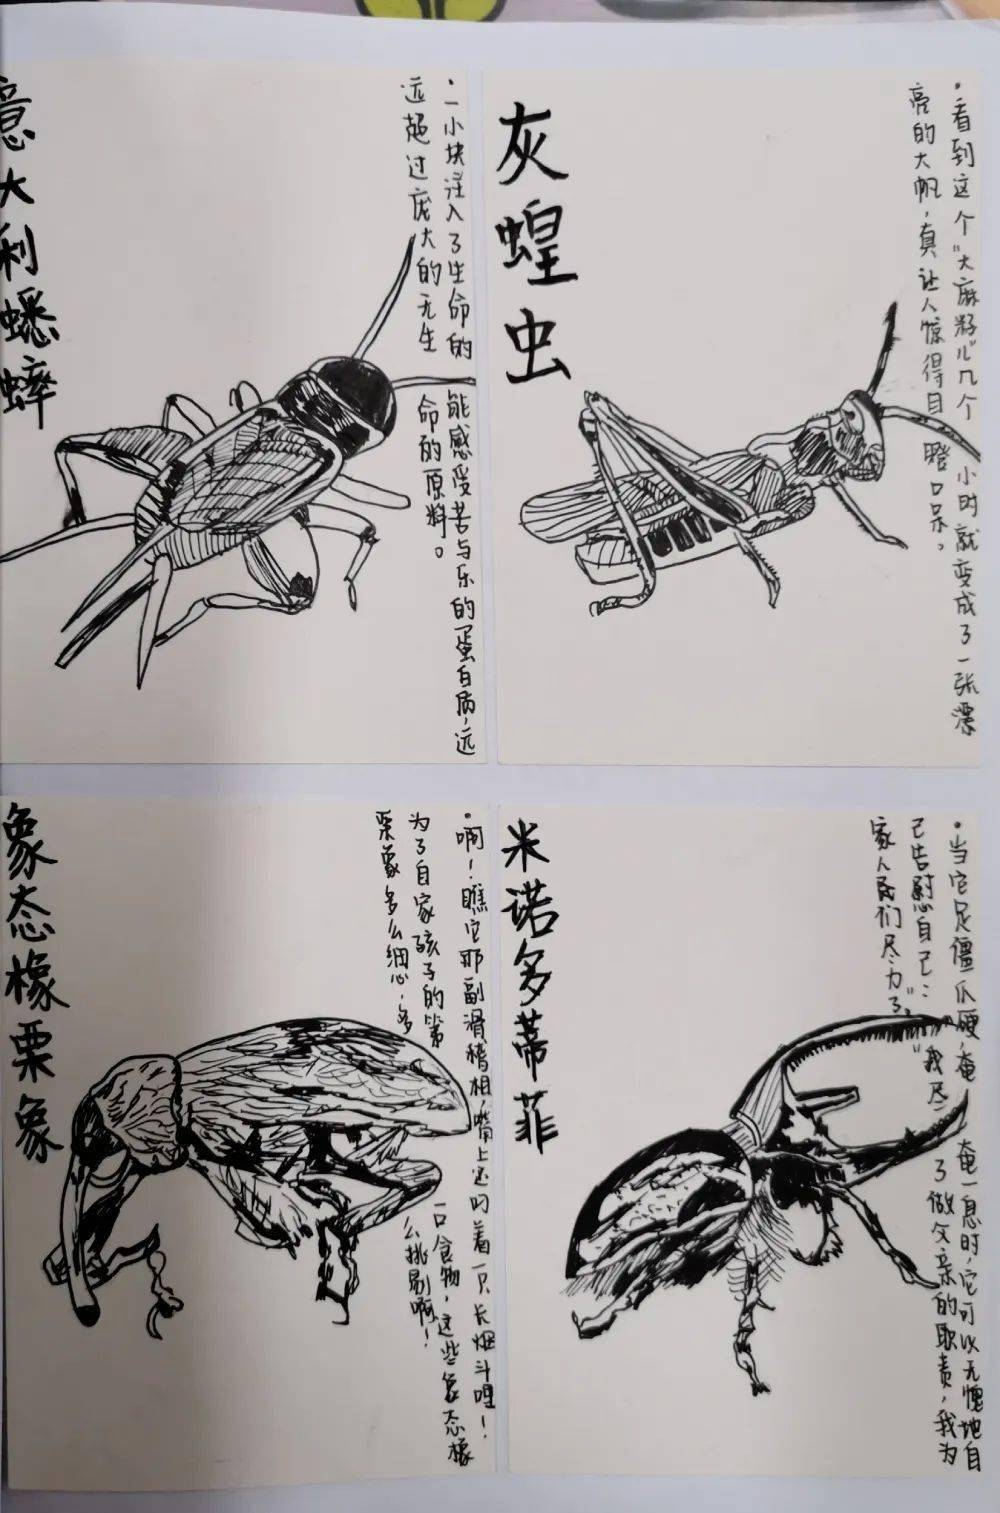 意大利蟋蟀
·一小块注入了生命的能感受苦与乐的蛋白质，远
远超过庞大的无生命的原料。
灰蝗虫
·看到这个“大麻籽儿”几个小时就变成了一张漂
亮的大帆，真让人惊得目瞪口呆。
象态橡栗象
·啊！瞧它那副滑稽相，嘴上还叼着一只长烟斗哩！
为了自家孩子的第一口食物，这些象态橡
栗象多么细心，多么挑剔啊！
米诺多蒂菲
·当它足僵爪硬，奄奄一息时，它可以无愧地自
己告慰自己：“我尽了做父亲的职责，我为
家人民们尽力了。”